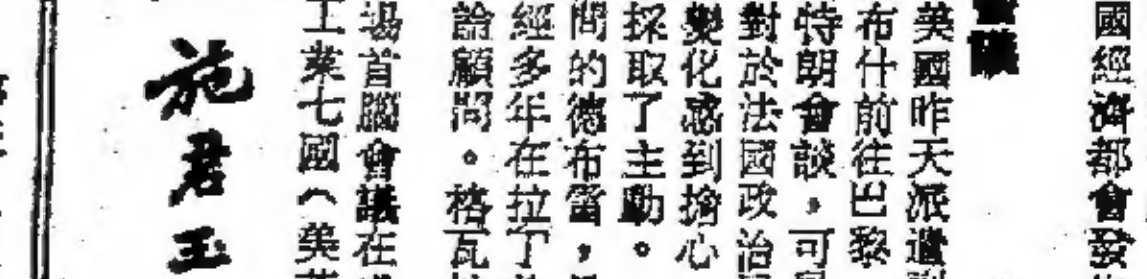 國經濟都會發
美國昨天派遣副
布什前往巴黎
特朗會談，可
對於法國政治
變化感到擔心
採取了主動。
問的德布雷，
經多年在拉丁
論顧問。格瓦
場首腦會議在
工業七國（美英
施君玉